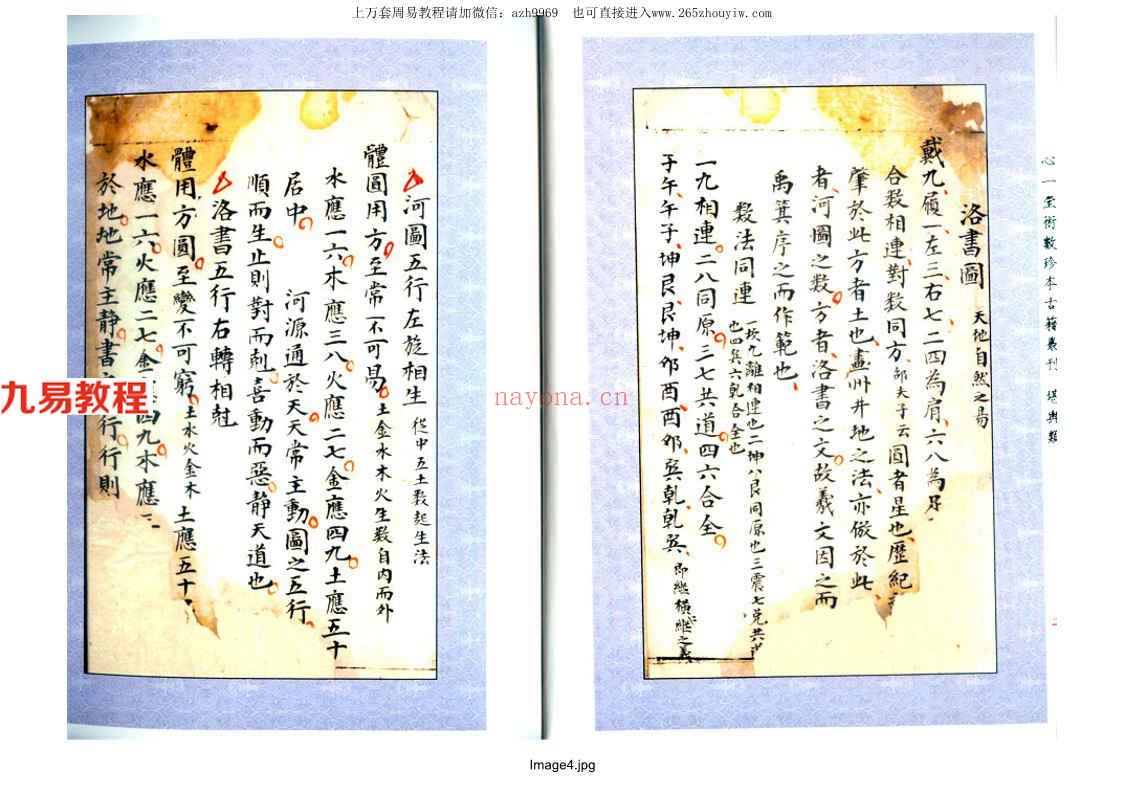 上万套周易教程请加微信：azh9969 也可直接进入www.265zhouyiw.com
心一堂術數珍本古籍叢刊 堪輿類
洛書圖 天地自然之易
戴九履一左三右七二四為肩六八為足
合數相連對數同方 邵夫子云 圓者星也歷紀
肇於此方者土也畫州井地之法亦倣於此
者河圖之數方者洛書之文故羲文因之而
禹箕序之而作範也
數法同連 一坎九離相連也二坤八艮同原也三震七兌共
也四巽六乾合全也
一九相連二八同原三七共道四六合全
子午午子坤艮艮坤卯酉酉卯巽乾乾巽 即縱橫之義
河圖五行左旋相生 從中五土數起生法
體圓用方至常不可易 土金水木火生數自內而外
水應一六木應三八火應二七金應四九土應五十
居中 河源通於天天常主動圖之五行
順而生止則對而剋喜動而惡靜天道也
洛書五行右轉相尅
體用方圓至變不可窮 土水火金木 土應五十
水應一六火應二七金 四九木應三
於地地常主靜書 行行則
九易教程
nayona.cn
Image4.jpg